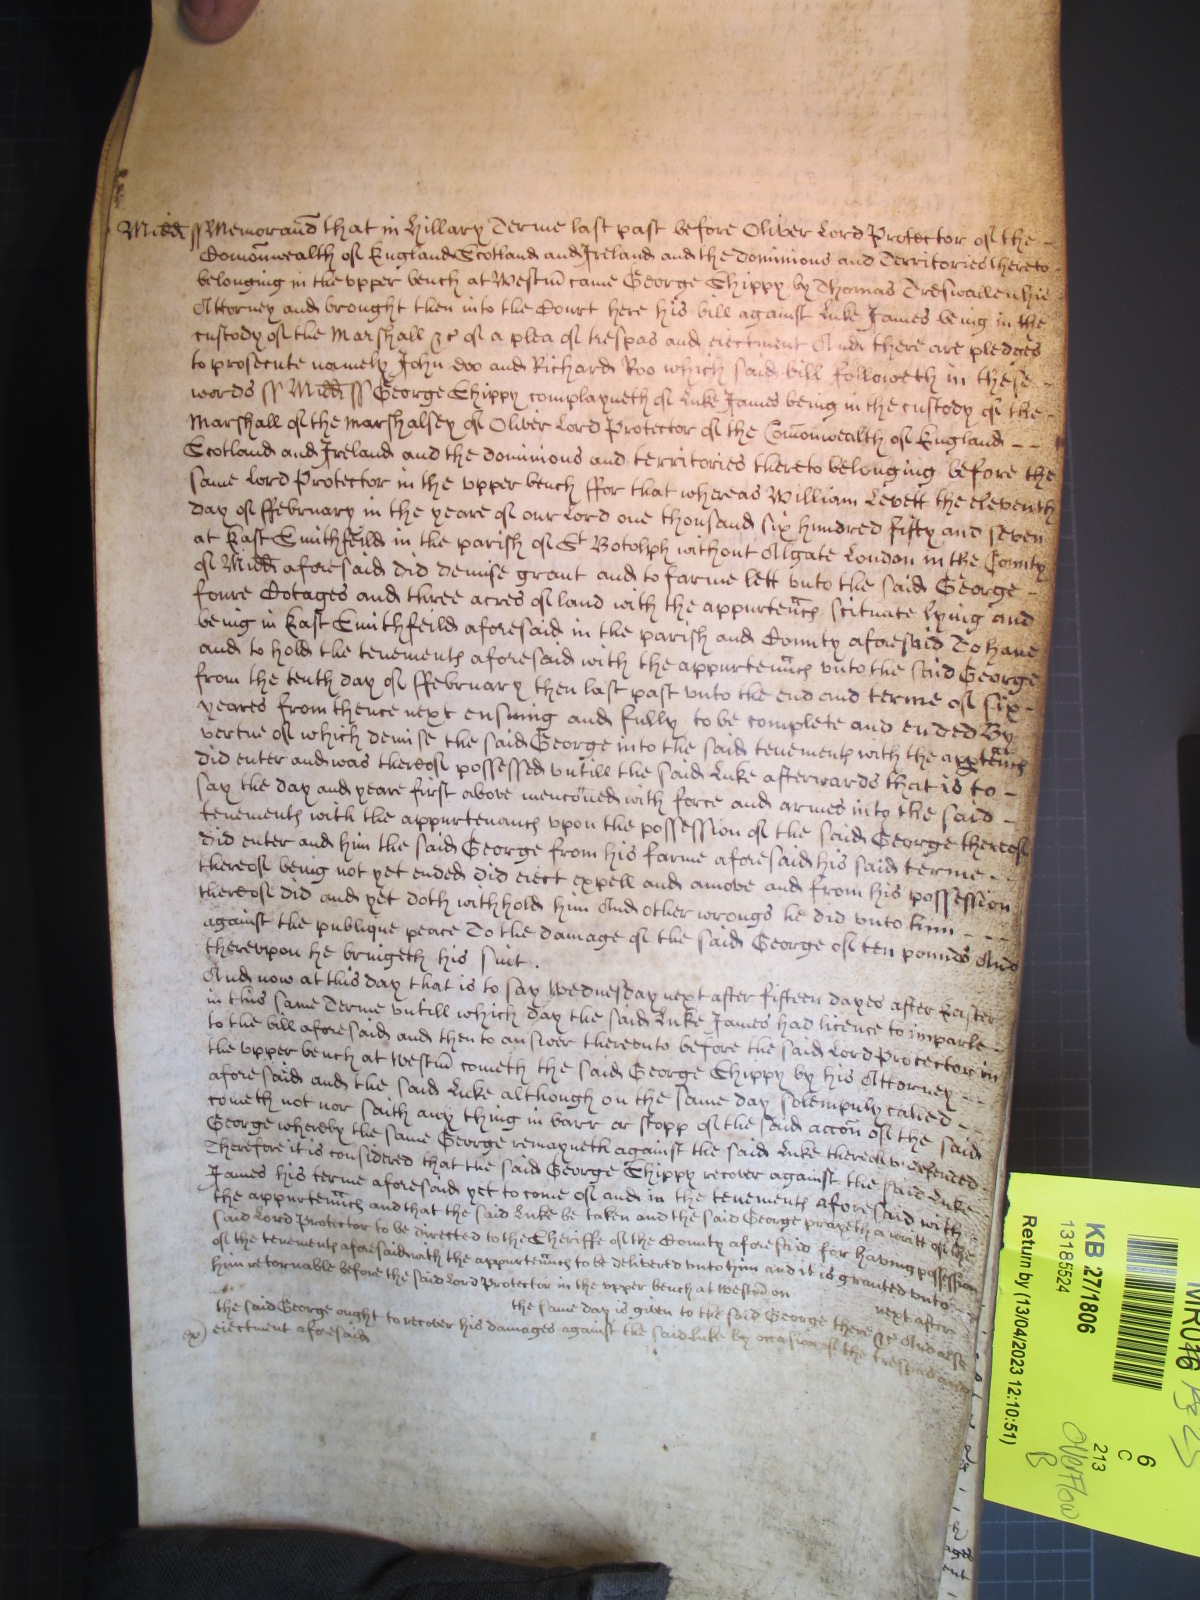 Midd ss Memorand that in Hillary Terme last past before Oliver Lord Protector of the -
Comonwealth of England Scotland and Ireland and the dominions and Territories thereto -
belonging in the upper bench at Westm came George Chippy by Thomas Treswallen his
Attorney and brought then into the Court here his bill against Luke James being in the
custody of the Marshall &c of a plea of trespas and eiectment And there are pledges
to prosecute namely John Doo and Richard Roo which said bill followeth in these -
words ss Midd ss George Chippy complayneth of Luke James being in the custody of the -
Marshall of the Marshalsey of Oliver Lord Protector of the Comonwealth of England - -
Scotland and Ireland and the dominions and territories thereto belonging before the
same Lord Protector in the upper bench ffor that whereas William Levett the eleventh
day of ffebruary in the yeare of our Lord one thousand six hundred fifty and seven
at East Smithfeild in the parish of St Botolph without Algate London in the County
of Midd aforesaid did demise grant and to farme lett unto the said George -
foure Cotages and three acres of land with the appurtencs scituate lying and
being in East Smithfeild aforesaid in the parish and County aforesaid To have
and to hold the tenements aforesaid with the appurtencs unto the said George
from the tenth day of ffebruary then last past unto the end and terme of six -
yeares from thence next ensuing and fully to be complete and ended By
vertue of which demise the said George into the said tenements with the apptencs
did enter and was thereof possessed untill the said Luke afterwards that is to -
say the day and yeare first above menconed with force and armes into the said -
tenements with the appurtenancs upon the possession of the said George thereof
did enter and him the said George from his farme aforesaid his said terme - -
thereof being not yet ended did eiect expell and amove and from his possession
thereof did and yet doth withhold him And other wrongs he did unto him - - -
against the publique peace To the damage of the said George of ten pounds And
thereupon he bringeth his suit .
And now at this day that is to say Wednesday next after fifteen dayes after Easter
in this same Terme untill which day the said Luke James had licence to imparle -
to the bill aforesaid and then to answer thereunto before the said Lord Protector in
the upper bench at Westm cometh the said George Chippy by his Attorney - -
aforesaid and the said Luke although on the same day solempnly called -
cometh not nor saith any thing in barr or stopp of the said accon of the said
George whereby the same George remayneth against the said Luke therein undefended
Therefore it is considered that the said George Chippy recover against the said Luke
James his terme aforesaid yet to come of and in the tenements aforesaid with -
the appurtencs and that the said Luke be taken and the said George prayeth a writt of the
said Lord Protector to be directed to the Sheriffe of the County aforesaid for having possession
of the tenements aforesaid with the appurtencs to be delivered unto him and it is granted unto -
him retornable before the said Lord Protector in the upper bench at Westm on next after
the same day is given to the said George there &c And also
the said George ought to recover his damages against the said Luke by occasion of the trespas and
eiectment aforesaid
KB 27/1806
13185524
Return by (13/04/2023 12:10:51)
6
C
213
Overflow
B